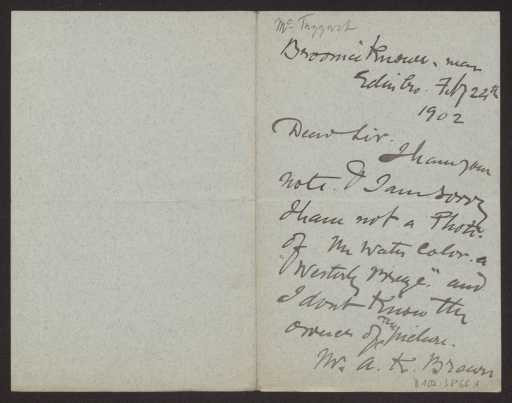 Mc Taggart
Broomie Knowe, near
Edinbro. Feby 24th
1902
Dear Sir.
I have your
note. I am sorry
I have not a Photo.
of my water Color. a
"Westerly Breeze." and
I dont know the
owner of my picture.
Mr. A. K. Brown